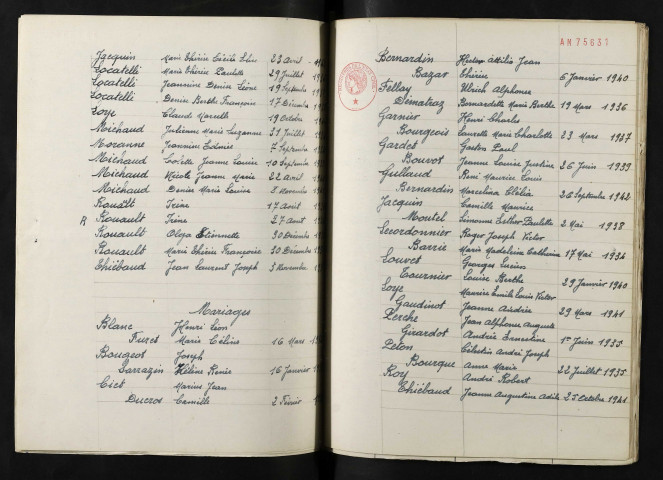 Jacquin Marie Thérèse Cécile 23 Avril
Locatelli Marie Thérèse Paulette 29 Juillet
Locatelli Jeannine Denise Léone 19 Septembre
Locatelli Denise Berthe Françoise 17 Décembre
Loye Claude Marcelle 19 Octobre
Michaud Julienne Marie Suzanne 31 Juillet
Moranne Jeannine 7 Septembre
Michaud Colette Jeanne Louise 10 Septembre
Michaud Nicole Jeanne Marie 22 Avril
Michaud Denise Marie Louise 8 Novembre
Rouault Irène 17 Août
R Rouault Irène 27 Août
Rouault Olga Etiennette 30 Décembre
Rouault Marie Thérèse Françoise 30 Décembre
Thiébaud Jean Laurent Joseph 3 Novembre
Mariages
Blanc Henri Léon
Furet Marie Céline 16 Mars
Bougeot Joseph
Sarrazin Hélène Renée 16 Janvier
Ciet Marius Jean
Ducros Camille 2 Février
AM75631
Bernardin Attilio Jean
Bazar Thérèse 6 Janvier 1940
Fellay Ulrich Alphonse
Dématraz Bernardette Marie Berthe 19 Mars 1936
Garnier Henri Charles
Bourgeois Laurette Marie Charlotte 23 Mars 1937
Gardet Gaston Paul
Bouvot Jeanne Louise Justine 26 Juin 1939
Guillaud René Maurice Louis
Bernardin Marcelina Clélia 26 Septembre 1942
Jacquin Camille Maurice
Moutel Simonne Esther Paulette 2 Mai 1938
Lecordonnier Roger Joseph Victor
Barrié Marie Madeleine Catherine 17 Mai 1934
Louvet Georges Lucien
Tournier Louise Berthe 29 Janvier 1940
Loye Maurice Emile Louis Victor
Gaudinot Jeanne Andrée 29 Mars 1941
Perche Jean Alphonse Auguste
Girardot Andrée Ernestine 1er Juin 1935
Pelon Célestin André Joseph
Bourque Anne Marie 22 Juillet 1935
Roy André Robert
Thiébaud Jeanne Augustine Adèle 25 Octobre 1941